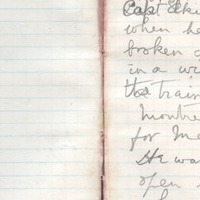 Capt Eki
when he
broken
in a wi
the train
Montre
for Me
He wa
open